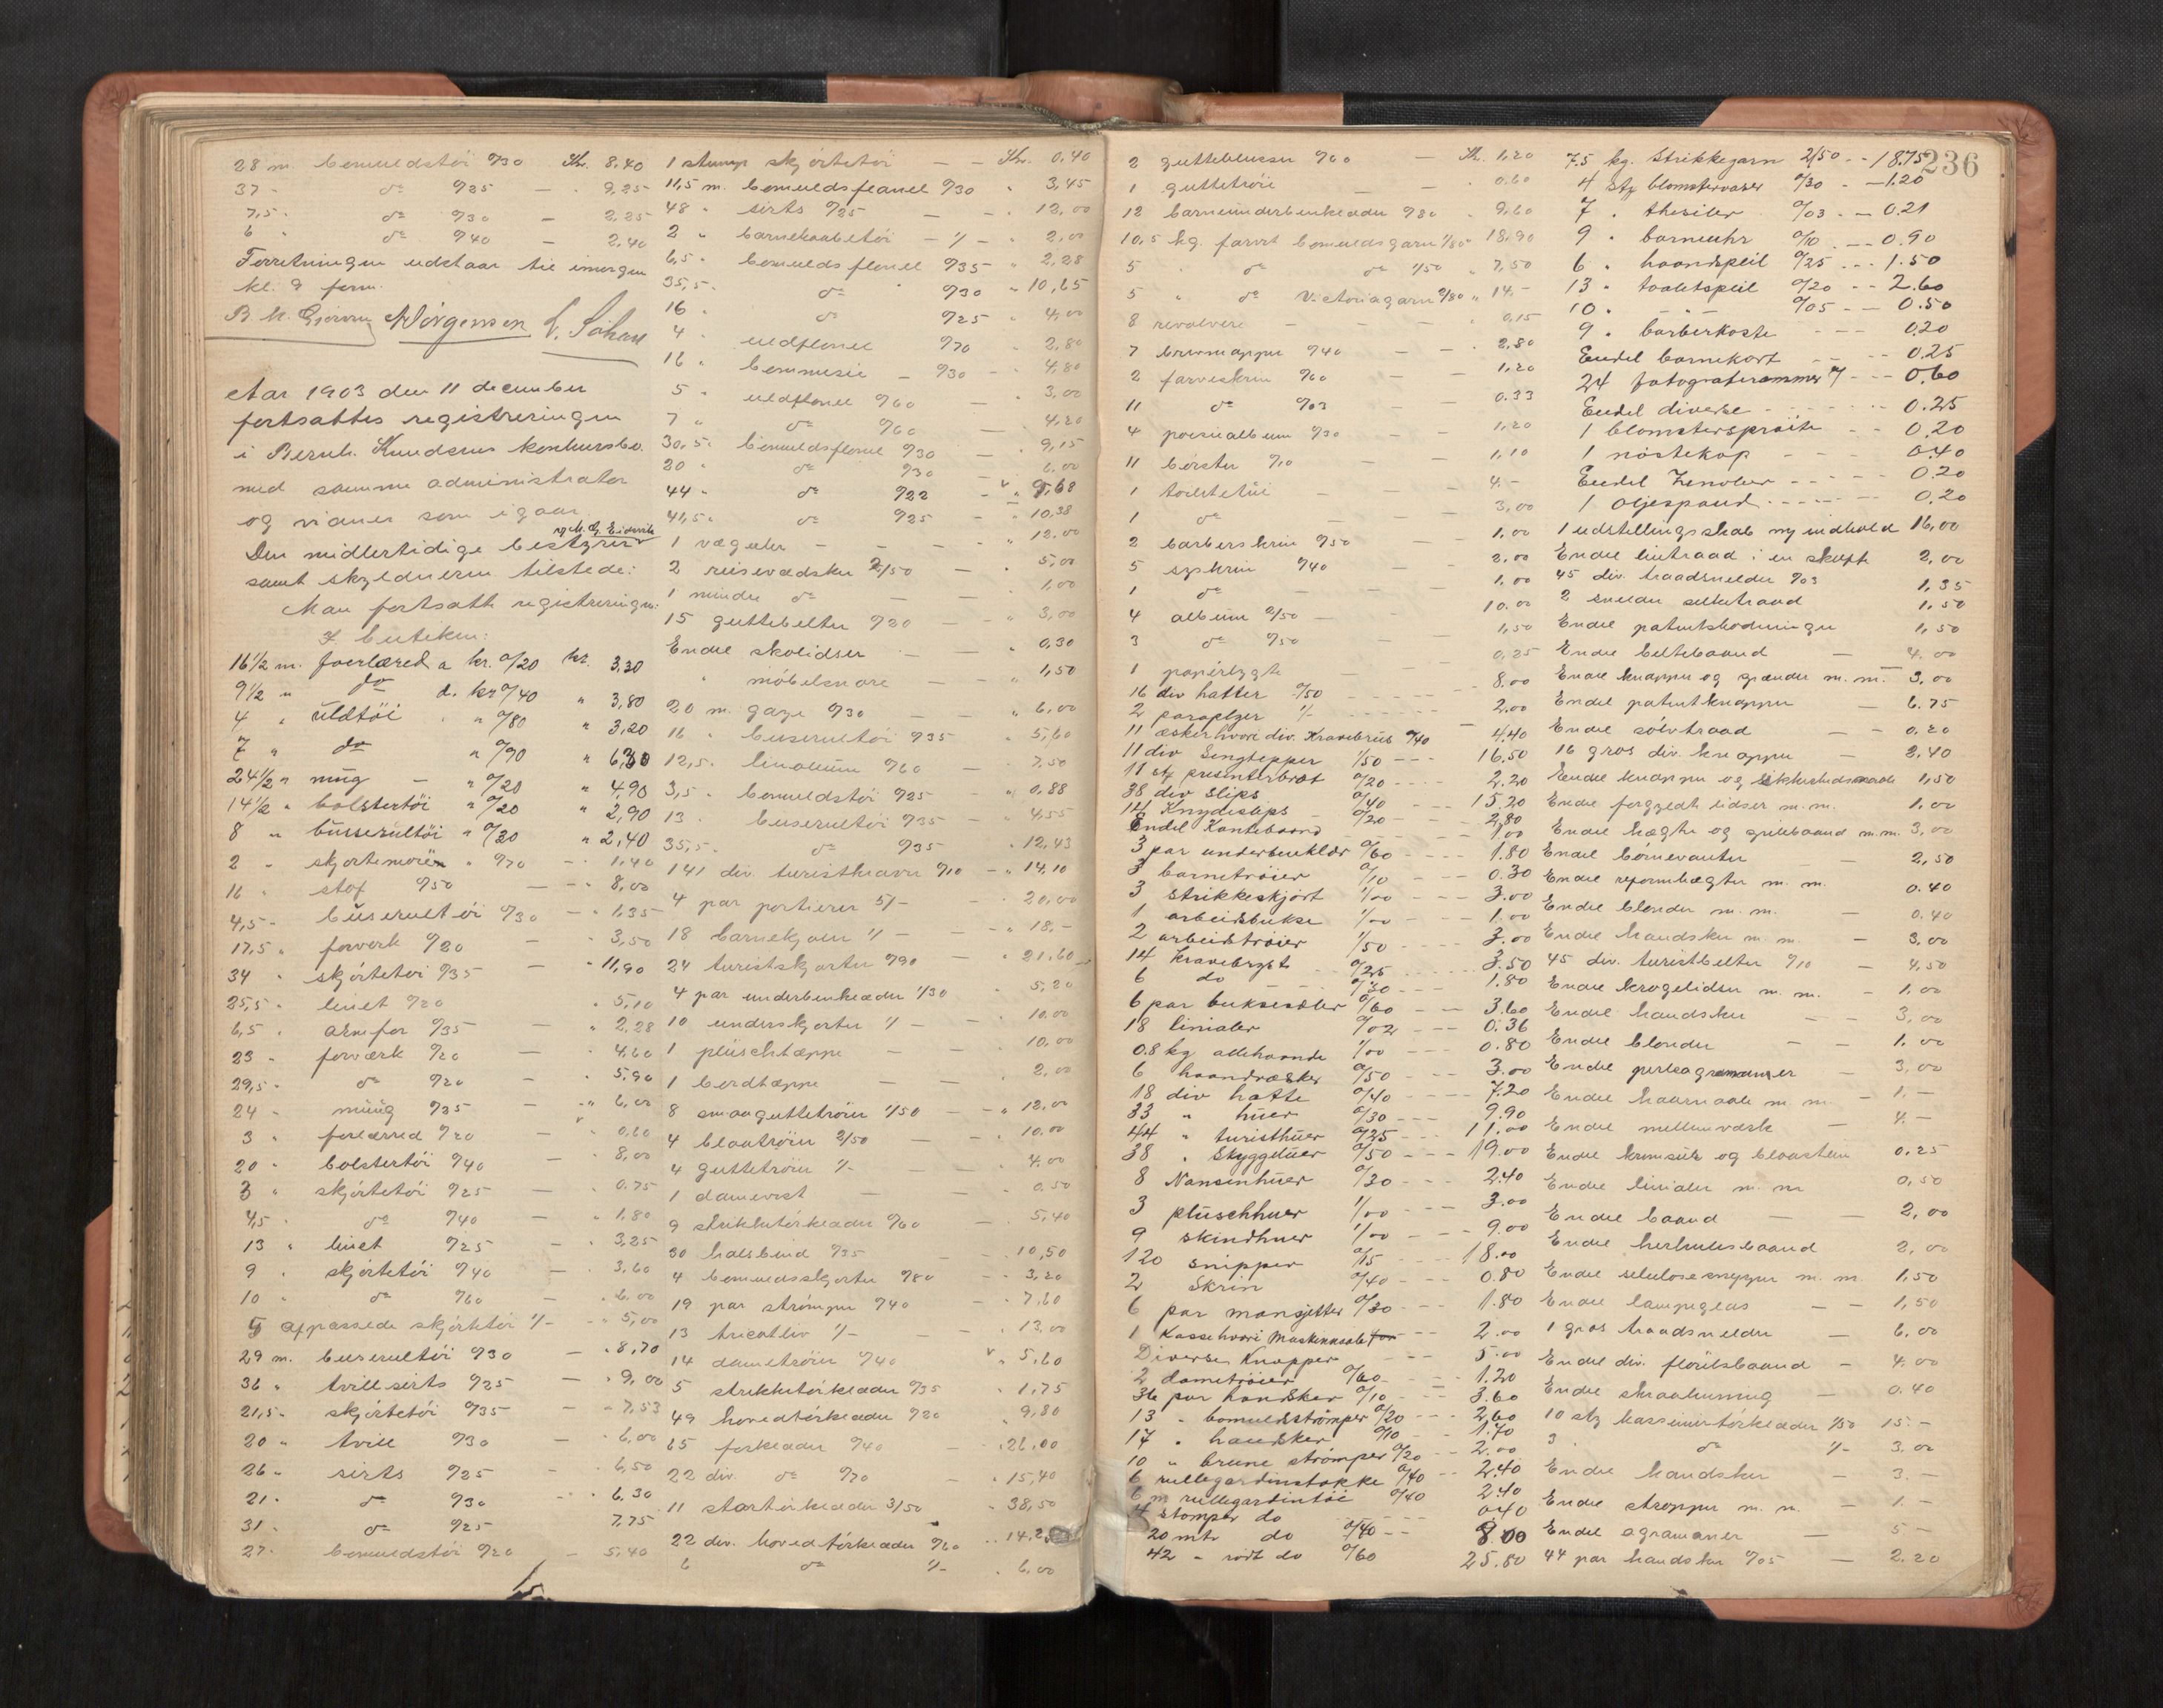 28 m. bomuldstöi 0/30 Kr. 8,40
37 " do 0/25 — 9,25
7,5 " do 0/30 — 2,25
6 " do 0/40 — 2,40
Forretningen udstaar til imorgen
kl. 9 form.
Jörgensen

Aar 1903 den 11 december
fortsattes registreringen
i Bernh. Knudsens konkursbo
med samme administrator
og vidner som igaar.
Den midlertidige bestyrer
samt skyldneren tilstede:
Man fortsatte registreringen:
I butiken:
16 1/2 m. foerlæred a kr. 0/20 kr. 3,30
9 1/2 " do a. kr 0/40 " 3,80
4 " uldtöi " " 0/80 " 3,20
7 " do " 0/90 " 6,30
24 1/2 " ming — " 0/20 " 4,90
14 1/2 " bolstertöi " 0/20 " 2,90
8 " busserultöi " 0/30 " 2,40
2 " skjortemoiren " 0/70 — 1,40
16 " stof 0/50 — 8,00
4,5 " buserultöi 0/30 — 1,35
17,5 " forverk 0/20 — 3,50
34 " skjörtetöi 0/35 — 11,90
25,5 " linet 0/20 " 5,10
6,5 " armfor 0/35 — " 2,28
23 " forværk 0/20 — 4,60
29,5 " do 0/20 — 5,90
24 " ming 0/25 — 6,00
3 " forlærred 0/20 — 0,60
20 " bolstertöi 0/40 — 8,00
3 " skjörtetöi 0/25 — 0.75
4,5 " do 0/40 — 1,80
13 " linet 0/25 — 3,25
9 " skjörtetöi 0/40 — 3,60
10 " do 0/60 — 6,00
5 afpassede skjörtetöi 1/- — 5,00
29 m. buserultöi 0/30 — 8,70
36 " tvill sirts 0/25 — 9,00
21,5 " skjörtetöi 0/35 — 7,53
20 " tvill 0/30 — 6,00
26 " sirts 0/25 — 6,50
21 " do 0/30 — 6.30
31 " do 0/25 7,75
27 " bomuldstöi 0/20 — 5,40

1 stump skjörtetöi — — Kr. 0,40
11,5 m. bomuldsflanel 0/30 " 3,45
48 " sirts 0/25 — 12,00
2 " barnekaabetöi — 1/— " 2,00
6,5 " bomuldsflonel 0/35 " 2,28
35,5 " do 0/30 " 10,65
16 " do 0/25 " 4,00
4 " uldflonel 0/70 " 2,80
16 " bommesie — 0/30 — 4,80
5 " uldflonel 0/60 — 3,00
7 " do 0/60 — 4,20
30,5 " bomuldsflonel 0/30 — 9,15
20 " do 0/30 — 6,00
44 " do 0/22 — 9,68
41,5 " do 0/25 — 10,38
1 væguhr — — — " 12.00
2 reisevadsker 2/50 — " 5,00
1 mindre do — — 1,00
15 guttebelter 0/20 — " 3,00
Endel skolidser — — " 0,30
" möbelsnore — " 1,50
20 m. gaze 0/30 — " 6,00
16 " buserultöi 0/35 " 5,60
12,5 " linoleum 0/60 — " 7,50
3,5 " bomuldstöi 0/25 — " 0,88
13 " buserultöi 0/35 — " 4,55
35,5 " do 0/35 " 12,43
141 div. turistkraver 0/10 — " 14,10
4 par portierer 5/- — " 20,00
18 barnekjoler 1/- — " 18,-
24 turistskjorter 0/90 — " 21,60
4 par underbenklæder 1/30 " 5,20
10 underskjorter 1/- — " 10.00
1 plüschtæppe — — " 10,00
1 bordtæppe — — " 2,00
8 smaaguttetröier 1/50 — " 12,00
4 blaatröier 2/50 — " 10.00
4 guttetröier 1/- — " 4,00
1 damevest — — " 0,50
9 strikketörklæder 0/60 — 5,40
30 halsbind 0/35 — 10,50
4 bomuldsskjorter 0/80 — 3,20
19 par strömper 0/40 — 7,60
13 tricotliv 1/- — 13,00
14 dametröier 0/40 " 5,60
5 strikketörklæder 0/35 " 1,75
49 hovedtörklæder 0/20 " 9,80
65 forklæder 0/40 — 26,00
22 div. do 0/70 — " 15,40
11 stortörklæder 3/50 " 38,50
22 div. hovedtörklæder 0/60 " 14.2
6 do 1/- " 6,00

236
2 gutteblusser 0/60 — Kr. 1,20
1 guttetröie — — 0.60
12 barneunderbenklæder 0/80 " 9,60
10,5 kg. farvet bomuldsgarn 1/80 18,90
5 " do do 1/50 " 7,50
5 " do Victoriagarn 2/80 " 14,-
8 revolvere — — — 0,15
7 brevmapper 0/40 — — 2,80
2 farveskrin 0/60 — — 1,20
11 do 0/03 — — 0.33
4 poesialbum 0/30 — — 1,20
11 börster 0/10 — — 1,10
1 toiletetui — — 4,-
1 do — — 3,00
2 barberskrin 0/50 — — 1,00
5 syskrin 0/40 — — 2,00
1 do — — 1,00
4 album 2/50 — — 10.00
3 do 0/50 — — 1,50
1 papirlygte — — 0,25
16 div hatter 0/50 — 8.00
2 paraplyer 1/- — 2.00
11 æsker hvori div. Kravebrus 0/40 — 4,40
11 div Sengtepper 1/50 --- 16.50
11 stk pruenterbrot 0/20 --- 2.20
38 div slips 0/40 --- 15.20
14 Knydeslips — 0/20 --- 2,80
Endel Kantebaand --- 1,00
3 par underbenklær 0/60 --- 1.80
3 barnetröier 0/10 --- 0.30
3 strikkeskjört 1/00 --- 3.00
1 arbeidsbukse 1/00 --- 1.00
2 arbeidströier 1/50 --- 3.00
14 Kravebryst 0/25 --- 3.50
6 do 0/30 --- 1.80
6 par bukseseler 0/60 --- 3.60
18 linialer 0/02 --- 0.36
0.8 kg allehaande 1/00 --- 0.80
6 haandvæsker 0/50 --- 3.00
18 div hatte 0/40 --- 7.20
33 " huer 0/30 --- 9.90
44 " turisthuer 0/25 --- 11.00
38 " Skyggeluer 0/50 --- 19.00
8 Nansenhuer 0/30 --- 2.40
3 plüschhuer 1/00 --- 3.00
9 skindhuer 1/00 --- 9.00
120 snipper 0/15 --- 18.00
2 Skrin 0/40 --- 0.80
6 par mansjetter 0/30 --- 1.80
1 Kasse hvori Maskennaale --- 2.00
Diverse Knapper --- 5.00
2 dametröier 0/60 --- 1.20
36 par handsker 0/10 --- 3.60
13 " bomuldströmper 0/20 --- 2,60
17 " handsker 0/10 --- 1.70
10 " brune strömper 0/20 --- 2.00
6 rullegardinstokke 0/40 --- 2.40
6 m rullegardintöi 0/40 2.40
4 stomper do 0.40
20 mtr do 0/40 --- 8.00
42 " rödt do 0/60 25.80

7.5 kg. Strikkegarn 2/50 -- 18.75
4 stk blomstervaser 0/30 — 1.20
7 " thesiler 0/03 -- 0.21
9 " barneuhr 0/10 -- 0.90
6 " haandspeil 0/25 -- 1.50
13 " toiletspeil 0/20 -- 2.60
10 " — " — 0/05 -- 0.50
9 " barberkoste --- 0.20
Endel barnekort --- 0.25
24 fotografirammer --- 0.60
Endel diverse --- 0.25
1 blomstersproite --- 0.20
1 nöstekop --- 0.40
Endel --- 0.20
1 oljespand --- 0.20
1 udstillingsskab m/ indhold 16,00
Endel lintraad i en skuffe 2,00
45 div. traadsneller 0/03 1,35
2 sneller silketraad 1,50
Endel patentskoninger 1,50
Endel beltebaand — 4.00
Endel knapper og spænder m. m. — 3,00
Endel patentknapper — 6.75
Endel sölvtraad — 0.20
16 gros div. knapper — 2,40
Endel knapper og sikkerhedsnaale 1,50
Endel forgyldte lidser m. m. 1.00
Endel hægter og gullbaand m. m. 3,00
Endel börnevanter — 2,50
Endel reformhægter m. m. 0.40
Endel blonder m. m. — 0.40
Endel handsker m. m. — 3,00
45 div. turistbelter 0/10 — 4,50
Endel krogelidser m. m. — 1.00
Endel handsker — — 3,00
Endel blonder — — 1.00
Endel perleagramaner — 3,00
Endel haarnaale m. m. — 1.—
Endel mellemværk — 4.—
Endel og blaasten 0.25
Endel linialer m. m 0,50
Endel baand — — 2,00
Endel herkulesbaand 2,00
Endel m. m. 1,50
Endel lampeglas — — 1,50
1 gros traadsneller — 6.00
Endel div. flöielsbaand — 4.00
Endel — 0.40
10 stk kassimirtörklæder 1/50 15.—
3 " do 1/- 3,00
Endel handsker — 3.—
Endel stropper m. m. — 1.—
Endel agramaner — 5.—
44 par handsker 0/05 — 2.20